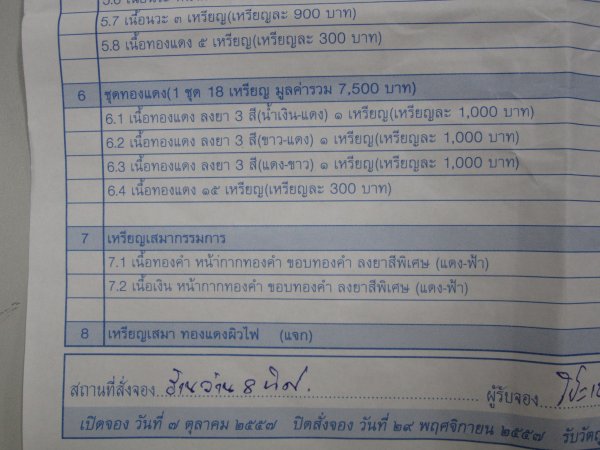 5.7 เนื้อนวะ ๓ เหรียญ(เหรียญละ 900 บาท)
5.8 เนื้อทองแดง ๕ เหรียญ(เหรียญละ 300 บาท)
6 ชุดทองแดง(1 ชุด 18 เหรียญ มูลค่ารวม 7,500 บาท)
6.1 เนื้อทองแดง ลงยา 3 สี(น้ำเงิน-แดง) ๑ เหรียญ(เหรียญละ 1,000 บาท)
6.2 เนื้อทองแดง ลงยา 3 สี(ขาว-แดง) ๑ เหรียญ(เหรียญละ 1,000 บาท)
6.3 เนื้อทองแดง ลงยา 3 สี(แดง-ขาว) ๑ เหรียญ(เหรียญละ 1,000 บาท)
6.4 เนื้อทองแดง ๑๕ เหรียญ(เหรียญละ 300 บาท)
7 เหรียญเสมากรรมการ
7.1 เนื้อทองคำ หน้ากากทองคำ ขอบทองคำ ลงยาสีพิเศษ (แดง-ฟ้า)
7.2 เนื้อเงิน หน้ากากทองคำ ขอบทองคำ ลงยาสีพิเศษ (แดง-ฟ้า)
8 เหรียญเสมา ทองแดงผิวไฟ (แจก)
สถานที่สั่งจอง ผู้รับจอง
เปิดจอง วันที่ ๗ ตุลาคม ๒๕๕๗ ปิดสั่งจอง วันที่ ๒๙ พฤศจิกายน ๒๕๕๗